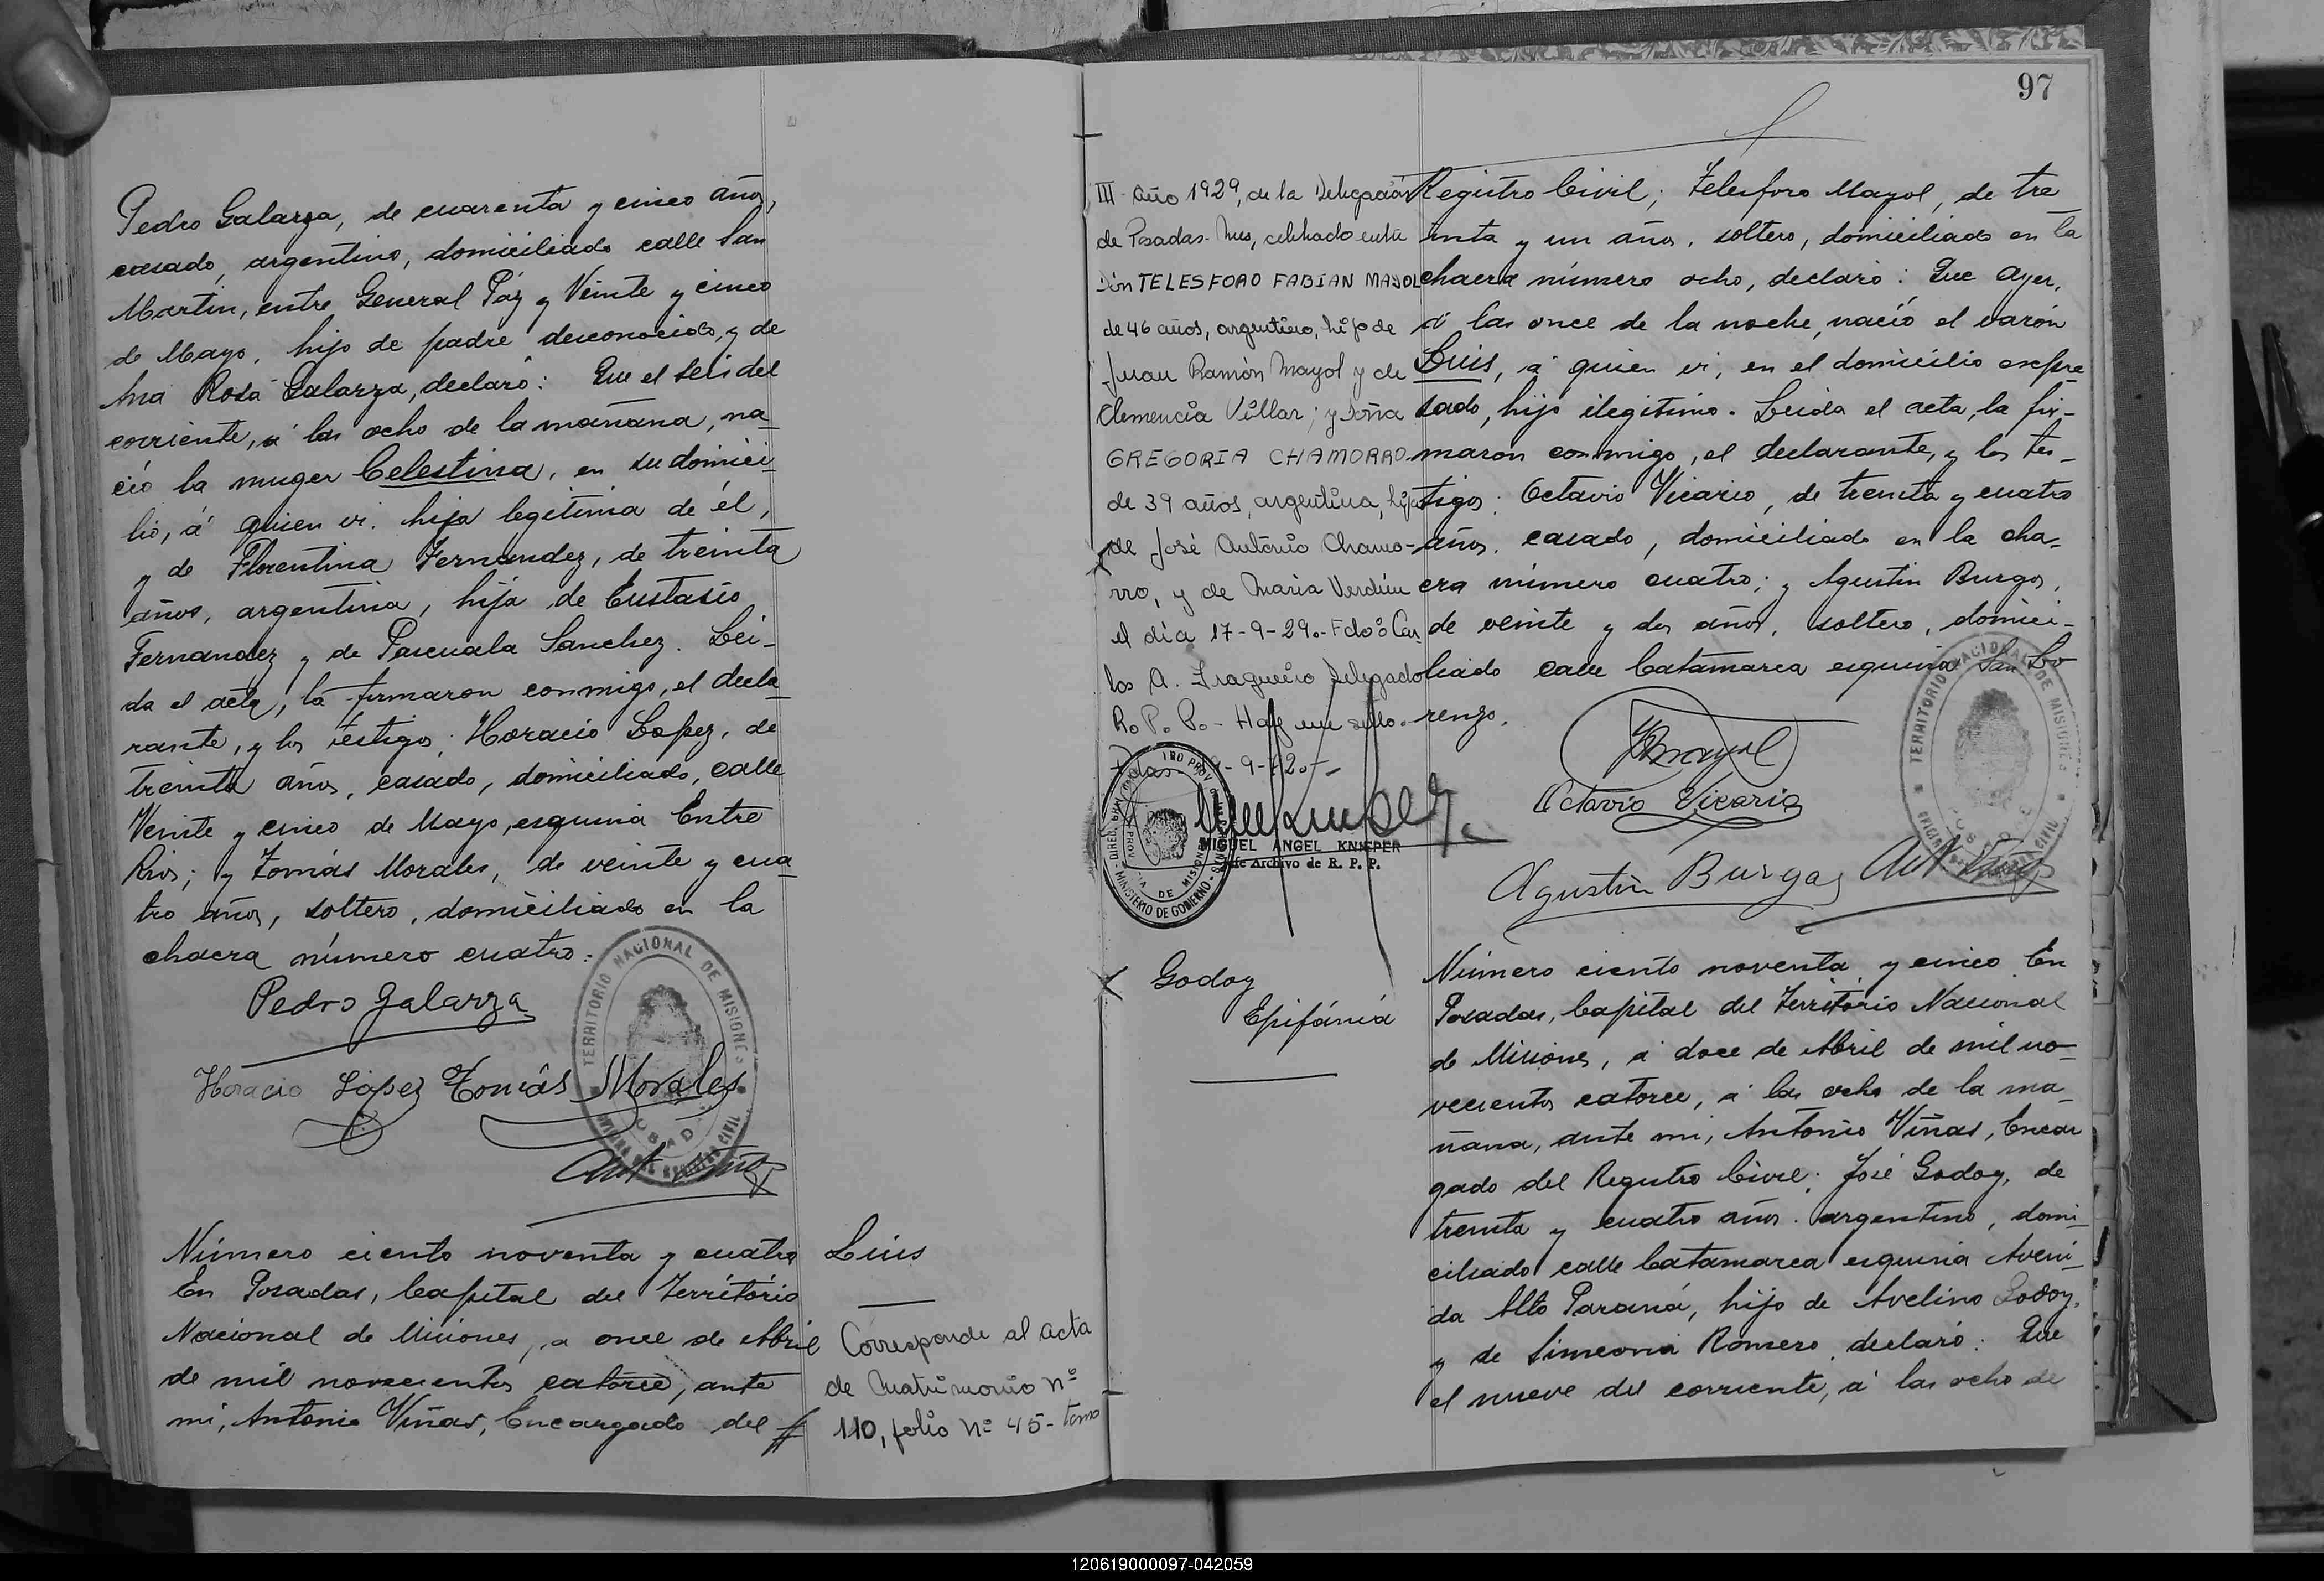 Pedro Galarza, de cuarenta y cinco años,
casado, argentino, domiciliado calle San
Martin, entre General Páz y Veinte y cinco
de Mayo, hijo de padre desconocido, y de
Ana Rosa Galarza, declaró: Que el seis del
corriente, á las ocho de la mañana, na_
ció la muger Celestina, en su domici_
lio, á quien vi. hija legitima de él,
y de Florentina Fernandez, de treinta
años, argentina, hija de Eustasio
Fernandez y de Pascuala Sanchez. Lei_
da el acta, la firmaron conmigo, el decla_
rante, y los testigos: Horacio Lopez, de
treinta años, casado, domiciliado, calle
Veinte y cinco de Mayo, esquina Entre
Rios; y Tomás Morales, de veinte y cua_
tro años, soltero, domiciliado en la
chacra número cuatro.
Pedro Galarza
Horacio Lopez Tomás Morales
TERRITORIO NACIONAL DE MISIONES
OFICINA DEL REGISTRO CIVIL
Ant Viñas
Número ciento noventa y cuatro
En Posadas, Capital del Território
Nacional de Misiones, a once de Abril
de mil novecientos catorce, ante
mi, Antonio Viñas, Encargado del
Luis
Corresponde al acta
de Matrimonio Nº
110, folio Nº 45- tomo
97
III- Año 1929, de la Delegación
de Posadas- Mnes, celebrado entre
Dón TELESFORO FABIAN MAYOL
de 46 años, argentino, hijo de
Juan Ramón Mayol y de
Clemencia Villar; y Doña
GREGORIA CHAMORRO
de 39 años, argentina, hija
de José Antonio Chamo-
rro, y de Maria Verdún
el día 17-9-29.- Fdo: Car
los A. Delegado
R. P. P.- Hay un sello.-
MINISTERIO DE GOBIERNO
MIGUEL ANGEL KNIEPER
Jefe Archivo de R. P. P.
Registro Civil; Telesforo Mayol, de tre
inta y un años, soltero, domiciliado en la
chacra número ocho, declaró: Que ayer,
á las once de la noche, nació el varón
Luis, á quien vi, en el domicilio expre_
sado, hijo ilegitimo. Leida el acta, la fir_
maron conmigo, el declarante, y los tes_
tigos: Octavio Vicario, de treinta y cuatro
años, casado, domiciliado en la cha_
cra número cuatro; y Agustin Burgos,
de veinte y dos años, soltero, domici_
liado calle Catamarca esquina San Lo
renzo.
TMayol
Octavio Vicario
TERRITORIO NACIONAL DE MISIONES
Agustin Burgas Ant Viñas
Godoy
Epifánia
Número ciento noventa y cinco. En
Posadas, Capital del Território Nacional
de Misiones, á doce de Abril de mil no_
vecientos catorce, á las ocho de la ma_
ñana, ante mi, Antonio Viñas, Encar
gado del Registro Civil; José Godoy, de
treinta y cuatro años, argentino, domi_
ciliado calle Catamarca esquina Aveni_
da Alto Paraná, hijo de Avelino Godoy,
y de Simeona Romero, declaró: Que
el nueve del corriente, á las ocho de
120619000097-042059